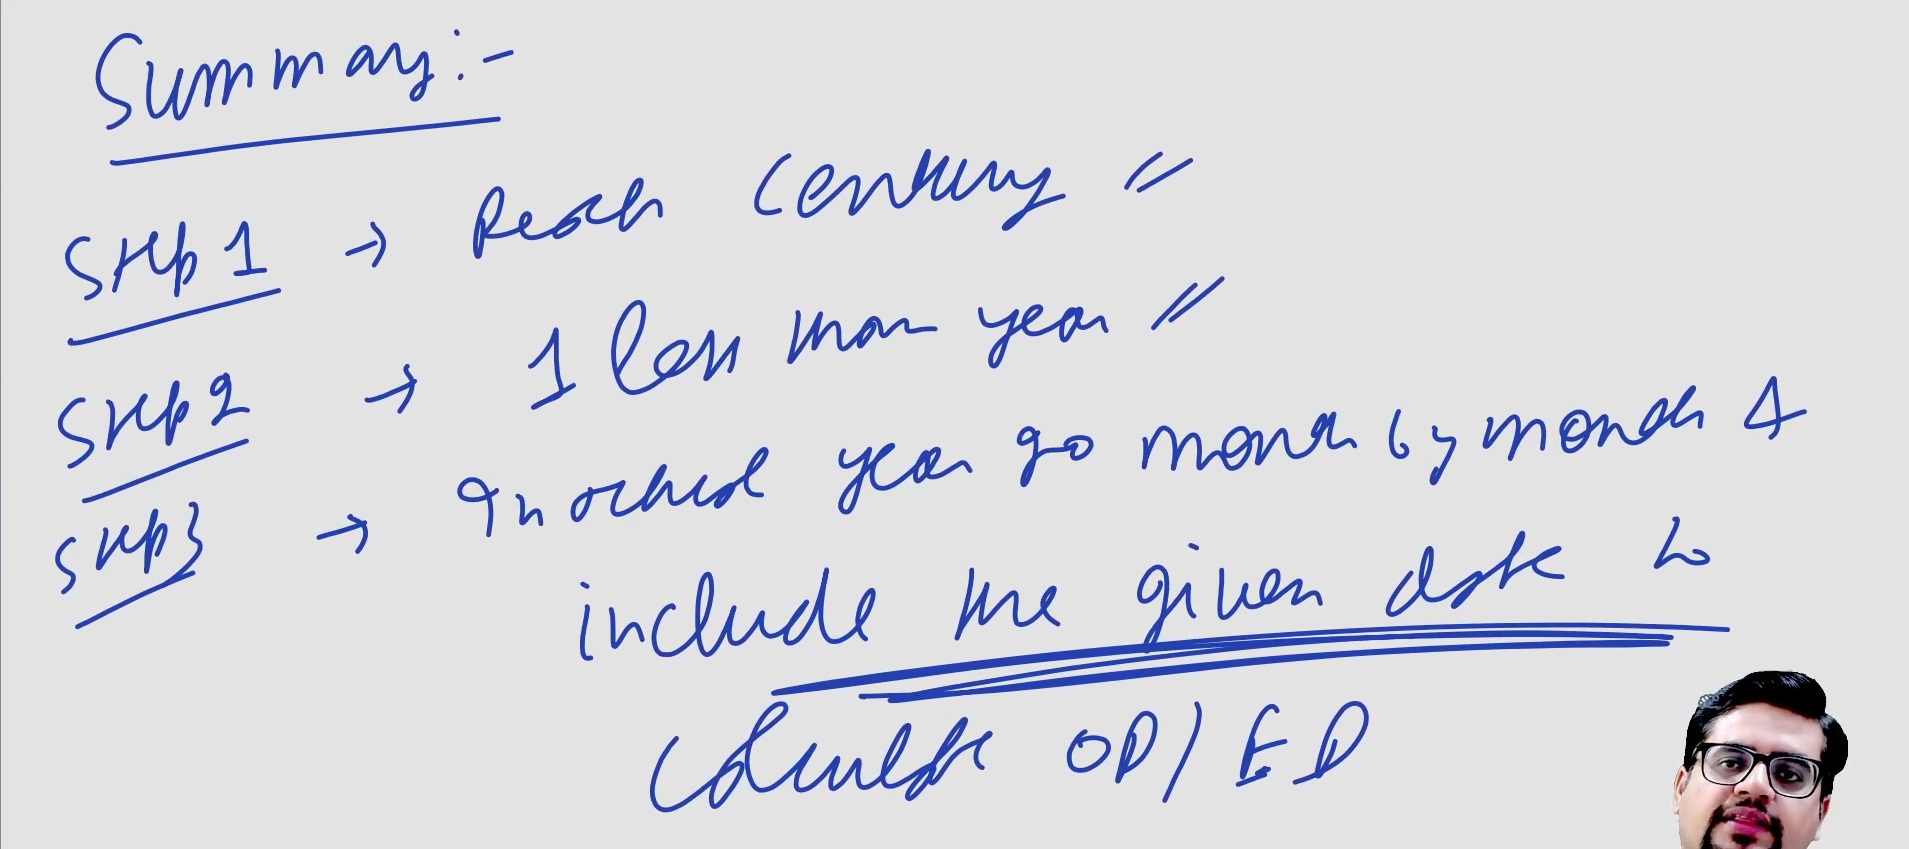 Summary:-
Step 1 → Reach Century
Step 2 → 1 less than year
Step 3 → In actual year go month by month &
include the given date to
calculate OD/ED